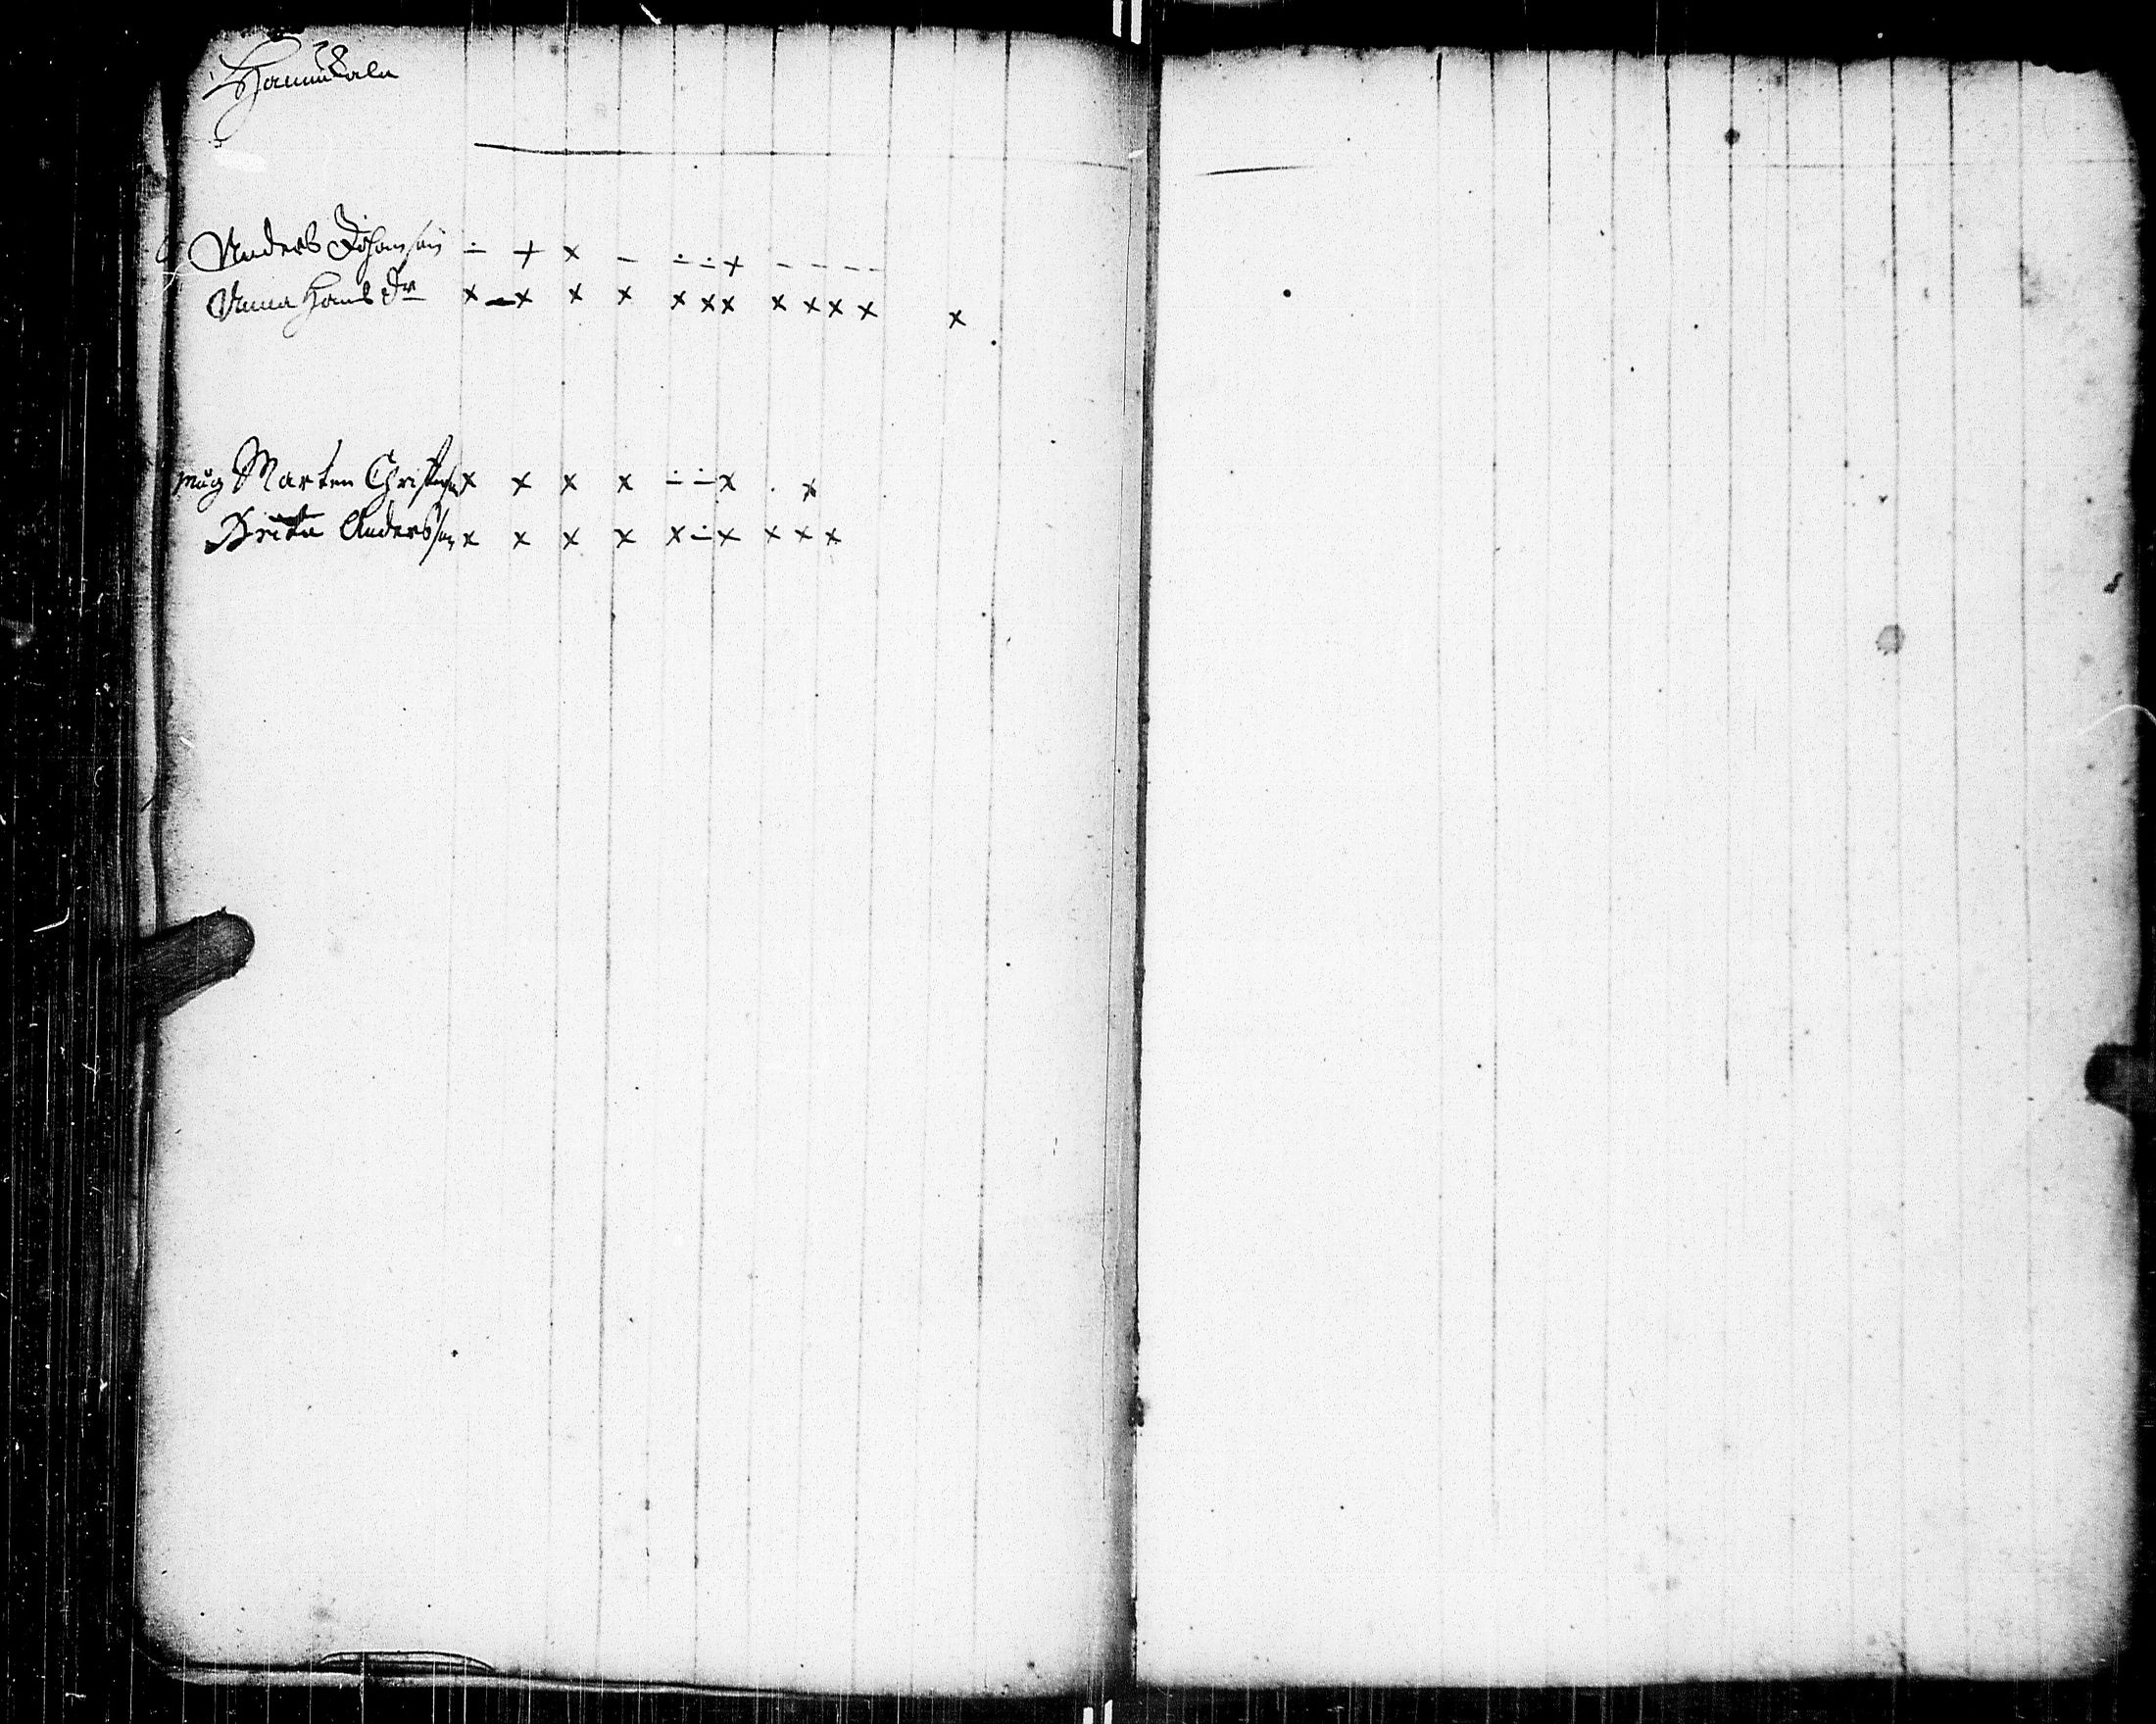 Hammurala
Anders Johansson ÷ + x – ÷ ÷ x – – – –
Anna Hans Dr x – x x x x x x x x x x x
måg Marten Christerss x x x x ÷ ÷ x . x
Brita Anderss x x x x x ÷ x x x x